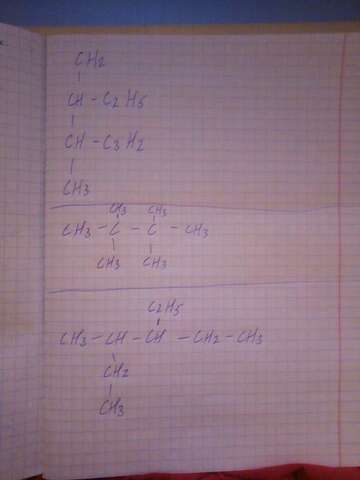 CH2
CH - C2H5
CH - C3H2
CH3
CH3 CH3
CH3 - C - C - CH3
CH3 CH3
C2H5
CH3 - CH - CH - CH2 - CH3
CH2
CH3